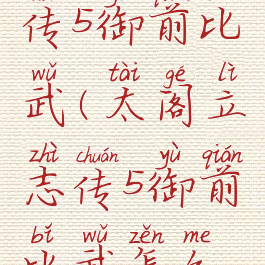 传5御前比
wǔ tài gé lì
武(太阁立
zhì chuán yù qián
志传5御前
bǐ wǔ zěn me
比武怎么